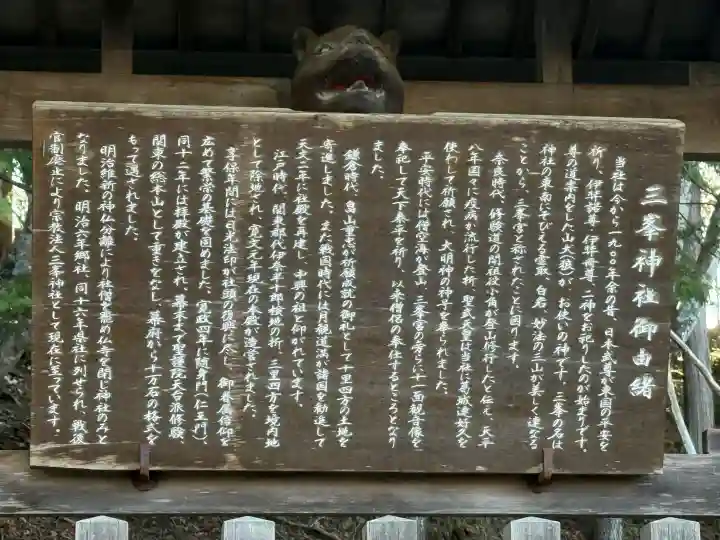 三峯神社御由緒
当社は今から一九〇〇年余の昔、日本武尊が皇国の平安を
祈り、伊弉諾尊、伊弉册尊、二神をお祀りしたのが始まりです。
尊の道案内をした山犬(狼)が、お使いの神です。三峯の名は
神社の東南にそびえる雲取、白岩、妙法の三山が美しく連なる
ことから、三峯宮と称されたことに因ります。
奈良時代、修験道の開祖役小角が登山修行したと伝え、天平
八年国々に疫病が流行した折、聖武天皇は当社に葛城連好久を
使わして祈願され、大明神の神号を奉られました。
平安時代には僧空海が登山、三峯宮の旁らに十一面観音像を
奉祀して天下泰平を祈り、以来僧侶の奉仕するところとなり
ました。
鎌倉時代、畠山重忠が祈願成就の御礼として十里四方の土地を
寄進しました。また戦国時代には月観道満が諸国を勧進して
天文二年に社殿を再建し、中興の祖と仰がれています。
江戸時代、関東郡代伊奈半十郎検地の折、三里四方を境内地
として除地され、寛文元年現在の本殿が造営されました。
享保年間には日光法印が社頭の復興に尽し、御眷属信仰を
広めて繁栄の基礎を固めました。寛政四年に随身門(仁王門)、
同十二年には拝殿が建立され、幕末まで聖護院天台派修験、
関東の総本山として重きをなし、幕府から十万石の格式を
もって遇されました。
明治維新の神仏分離により社僧を廃め仏寺を閉じ神社のみと
なりました。明治六年郷社、同十六年県社に列せられ、戦後
官制廃止により宗教法人「三峯神社」として現在に至っています。